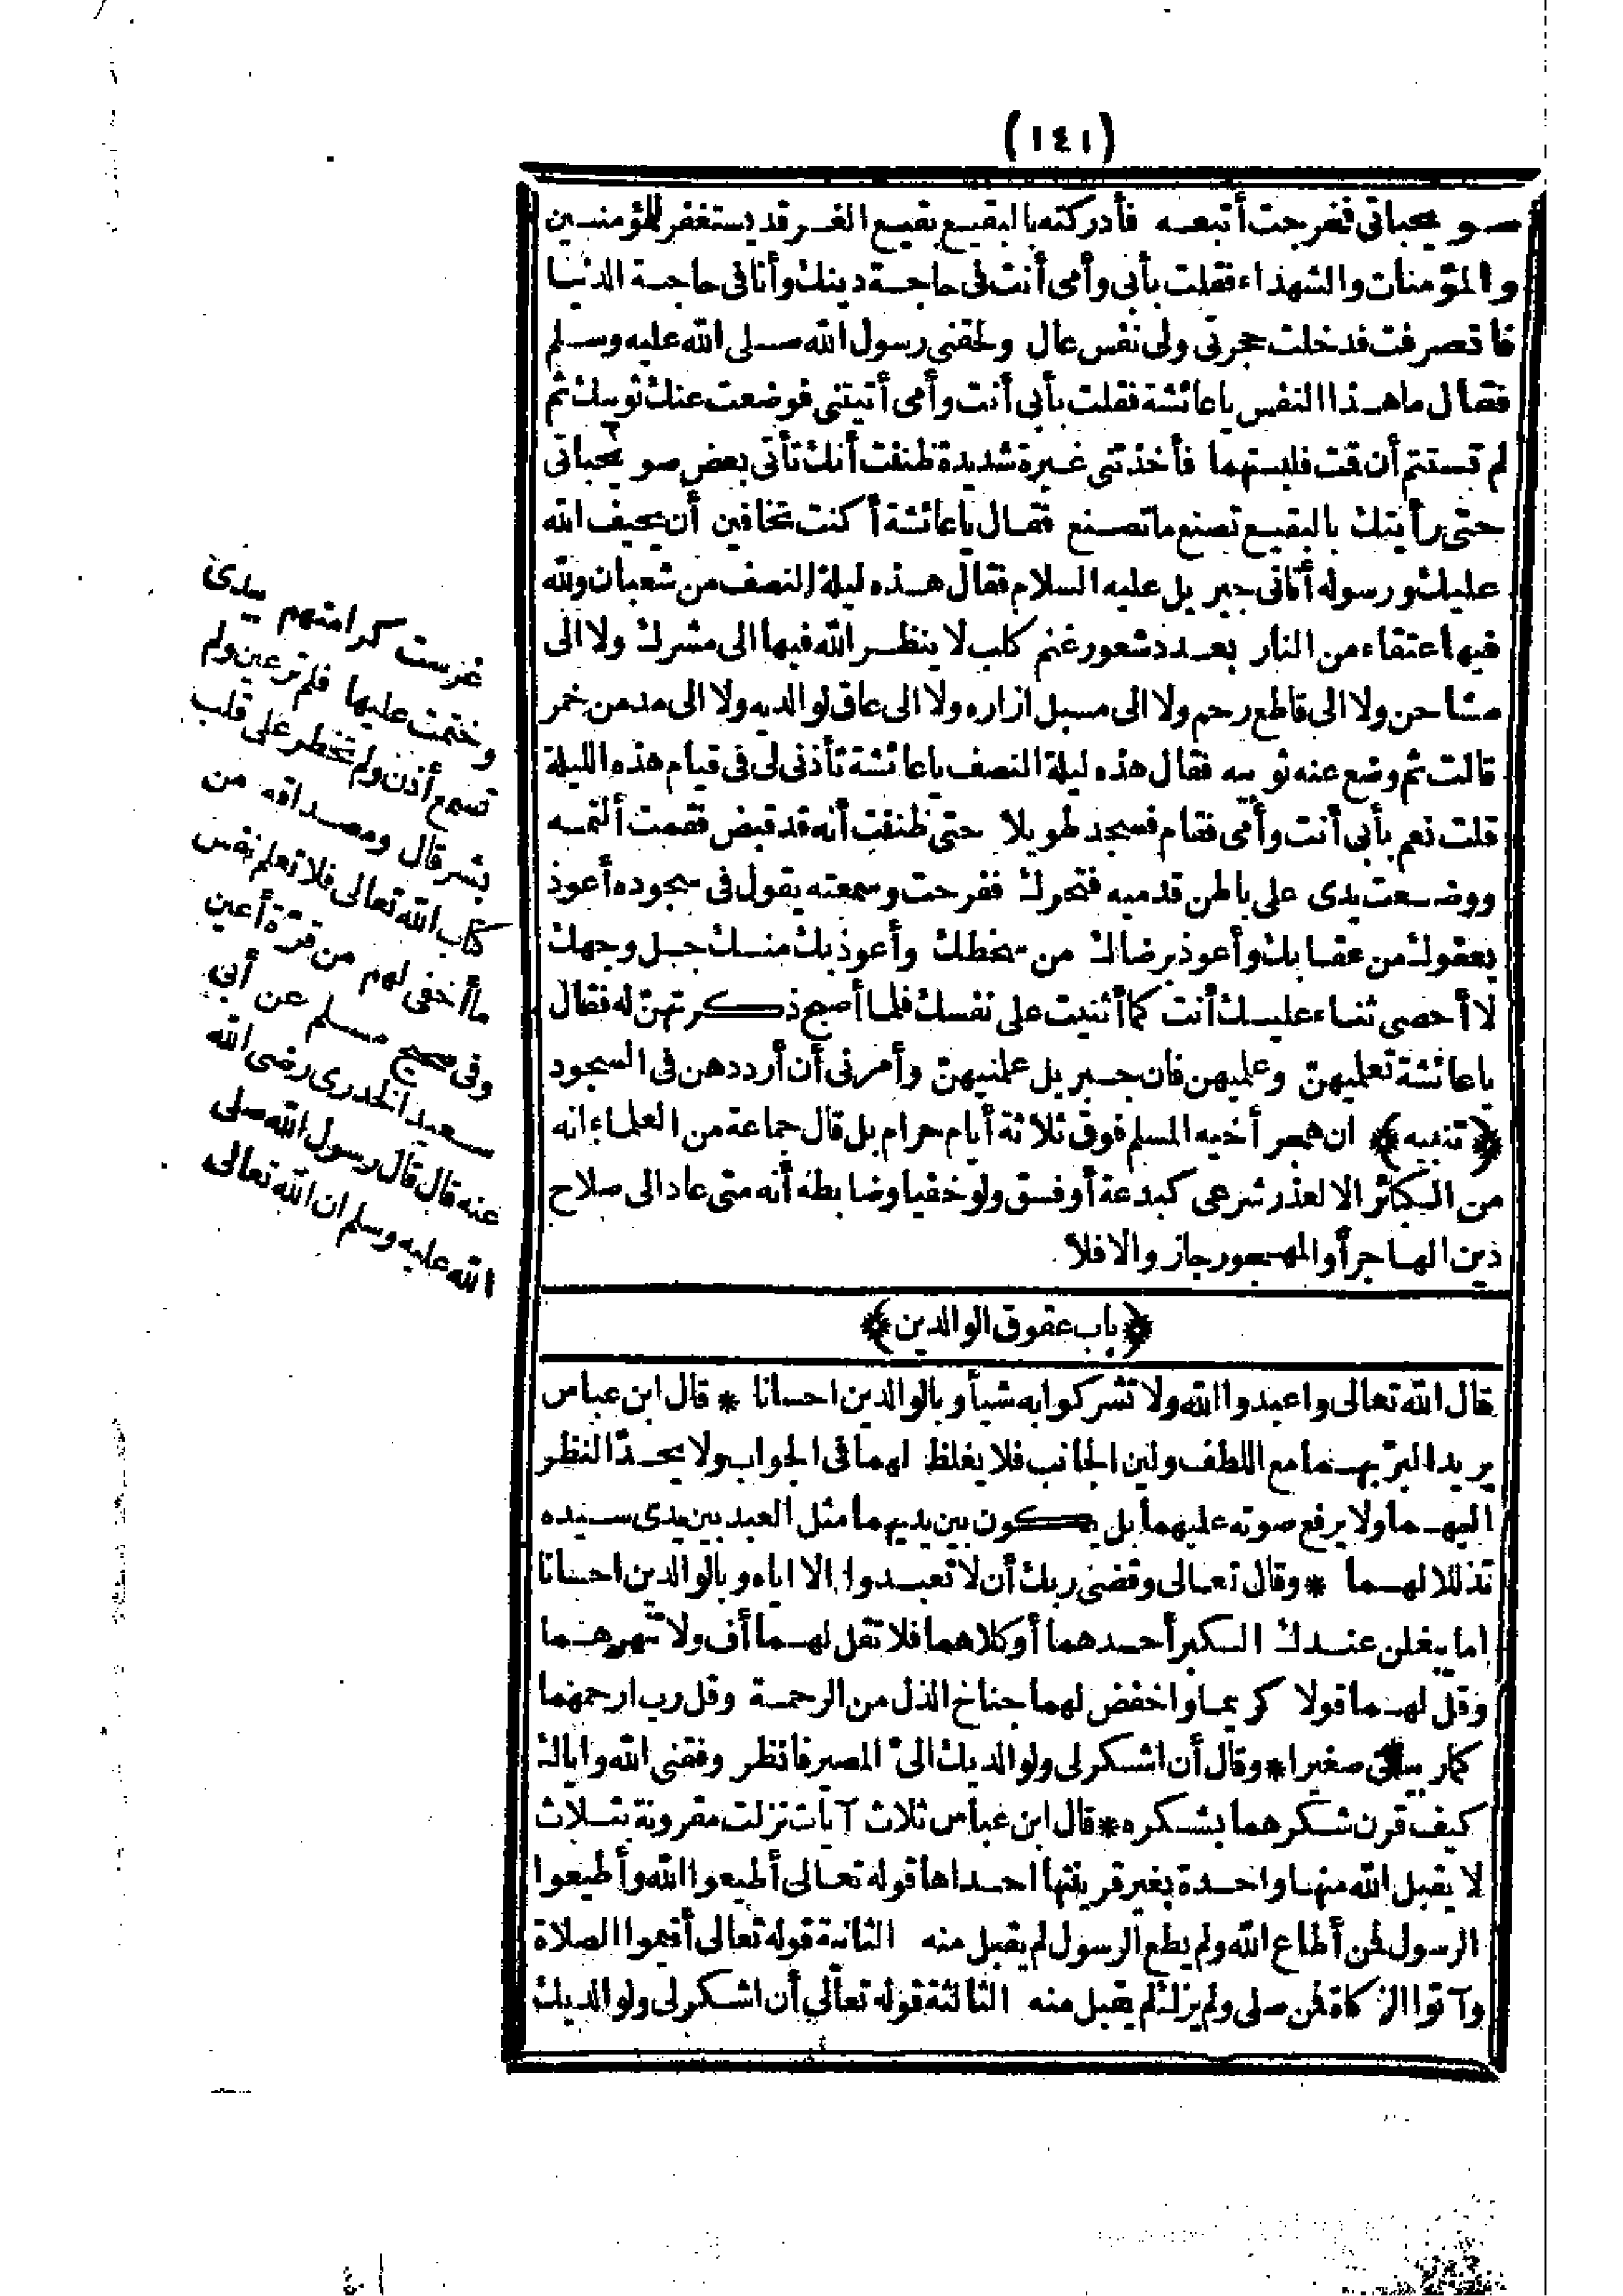 (١٤١)
صويحباتي فخرجت أتبعه فأدركته بالبقيع بقيع الغرقد يستغفر للمؤمنين
والمؤمنات والشهداء فقلت بأبي وأمي أنت في حاجة دينك وأنا في حاجة الدنيا
فانصرفت فدخلت حجرتي ولى نفس عال ولحقني رسول الله صلى الله عليه وسلم
فقال ما هذا النفس يا عائشة فقلت بأبي أنت وأمي أتيتني فوضعت عنك ثوبيك ثم
لم تستتم أن قمت فلبستهما فأخذتني غيرة شديدة ظننت أنك تأتي بعض صويحباتي
حتى رأيتك بالبقيع تصنع ما تصنع فقال يا عائشة أكنت تخافين أن يحيف الله
عليك ورسوله أتاني جبريل عليه السلام فقال هذه ليلة النصف من شعبان ولله
فيها عتقاء من النار بعدد شعور غنم كلب لا ينظر الله فيها الى مشرك ولا الى
مشاحن ولا الى قاطع رحم ولا الى مسبل ازاره ولا الى عاق لوالديه ولا الى مدمن خمر
قالت ثم وضع عنه ثوبيه فقال هذه ليلة النصف يا عائشة تأذني لى في قيام هذه الليلة
قلت نعم بأبي أنت وأمي فقام فسجد طويلا حتى ظننت أنه قد قبض فقمت ألتمسه
ووضعت يدى على باطن قدميه فتحرك ففرحت وسمعته يقول في سجوده أعوذ
بعفوك من عقابك وأعوذ برضاك من سخطك وأعوذ بك منك جل وجهك
لا أحصى ثناء عليك أنت كما أثنيت على نفسك فلما أصبح ذكرتهن له فقال
يا عائشة تعلميهن وعلميهن فان جبريل علمنيهن وأمرني أن أرددهن في السجود
﴿تنبيه﴾ ان هجر أخيه المسلم فوق ثلاثة أيام حرام بل قال جماعة من العلماء انه
من الكبائر الا لعذر شرعى كبدعة أو فسق ولو خفيا وضابطه أنه متى عاد الى صلاح
دين الهاجر أو المهجور جاز والا فلا
﴿باب عقوق الوالدين﴾
قال الله تعالى واعبدوا الله ولا تشركوا به شيأ وبالوالدين احسانا * قال ابن عباس
يريد البر بهما مع اللطف ولين الجانب فلا يغلظ لهما في الجواب ولا يحد النظر
اليهما ولا يرفع صوته عليهما بل يكون بين يديهما مثل العبد بين يدى سيده
تذللا لهما * وقال تعالى وقضى ربك أن لا تعبدوا الا اياه وبالوالدين احسانا
اما يبلغن عندك الكبر أحدهما أو كلاهما فلا تقل لهما أف ولا تنهرهما
وقل لهما قولا كريما واخفض لهما جناح الذل من الرحمة وقل رب ارحمهما
كما ربياني صغيرا * وقال أن اشكر لى ولوالديك الىّ المصير فانظر وفقني الله واياك
كيف قرن شكرهما بشكره * قال ابن عباس ثلاث آيات نزلت مقرونة بثلاث
لا يقبل الله منها واحدة بغير قرينتها احداها قوله تعالى أطيعوا الله وأطيعوا
الرسول فمن أطاع الله ولم يطع الرسول لم يقبل منه الثانية قوله تعالى أقيموا الصلاة
وآتوا الزكاة فمن صلى ولم يزك لم يقبل منه الثالثة قوله تعالى أن اشكر لى ولوالديك
غرست كرامتهم بيدي
وختمت عليها فلم تر عين ولم
تسمع أذن ولم تخطر على قلب
بشر قال ومصداقه من
كتاب الله تعالى فلا تعلم نفس
ما أخفى لهم من قرة أعين
وفي صحيح مسلم عن أبي
سعيد الخدرى رضى الله
عنه قال قال رسول الله صلى
الله عليه وسلم ان الله تعالى